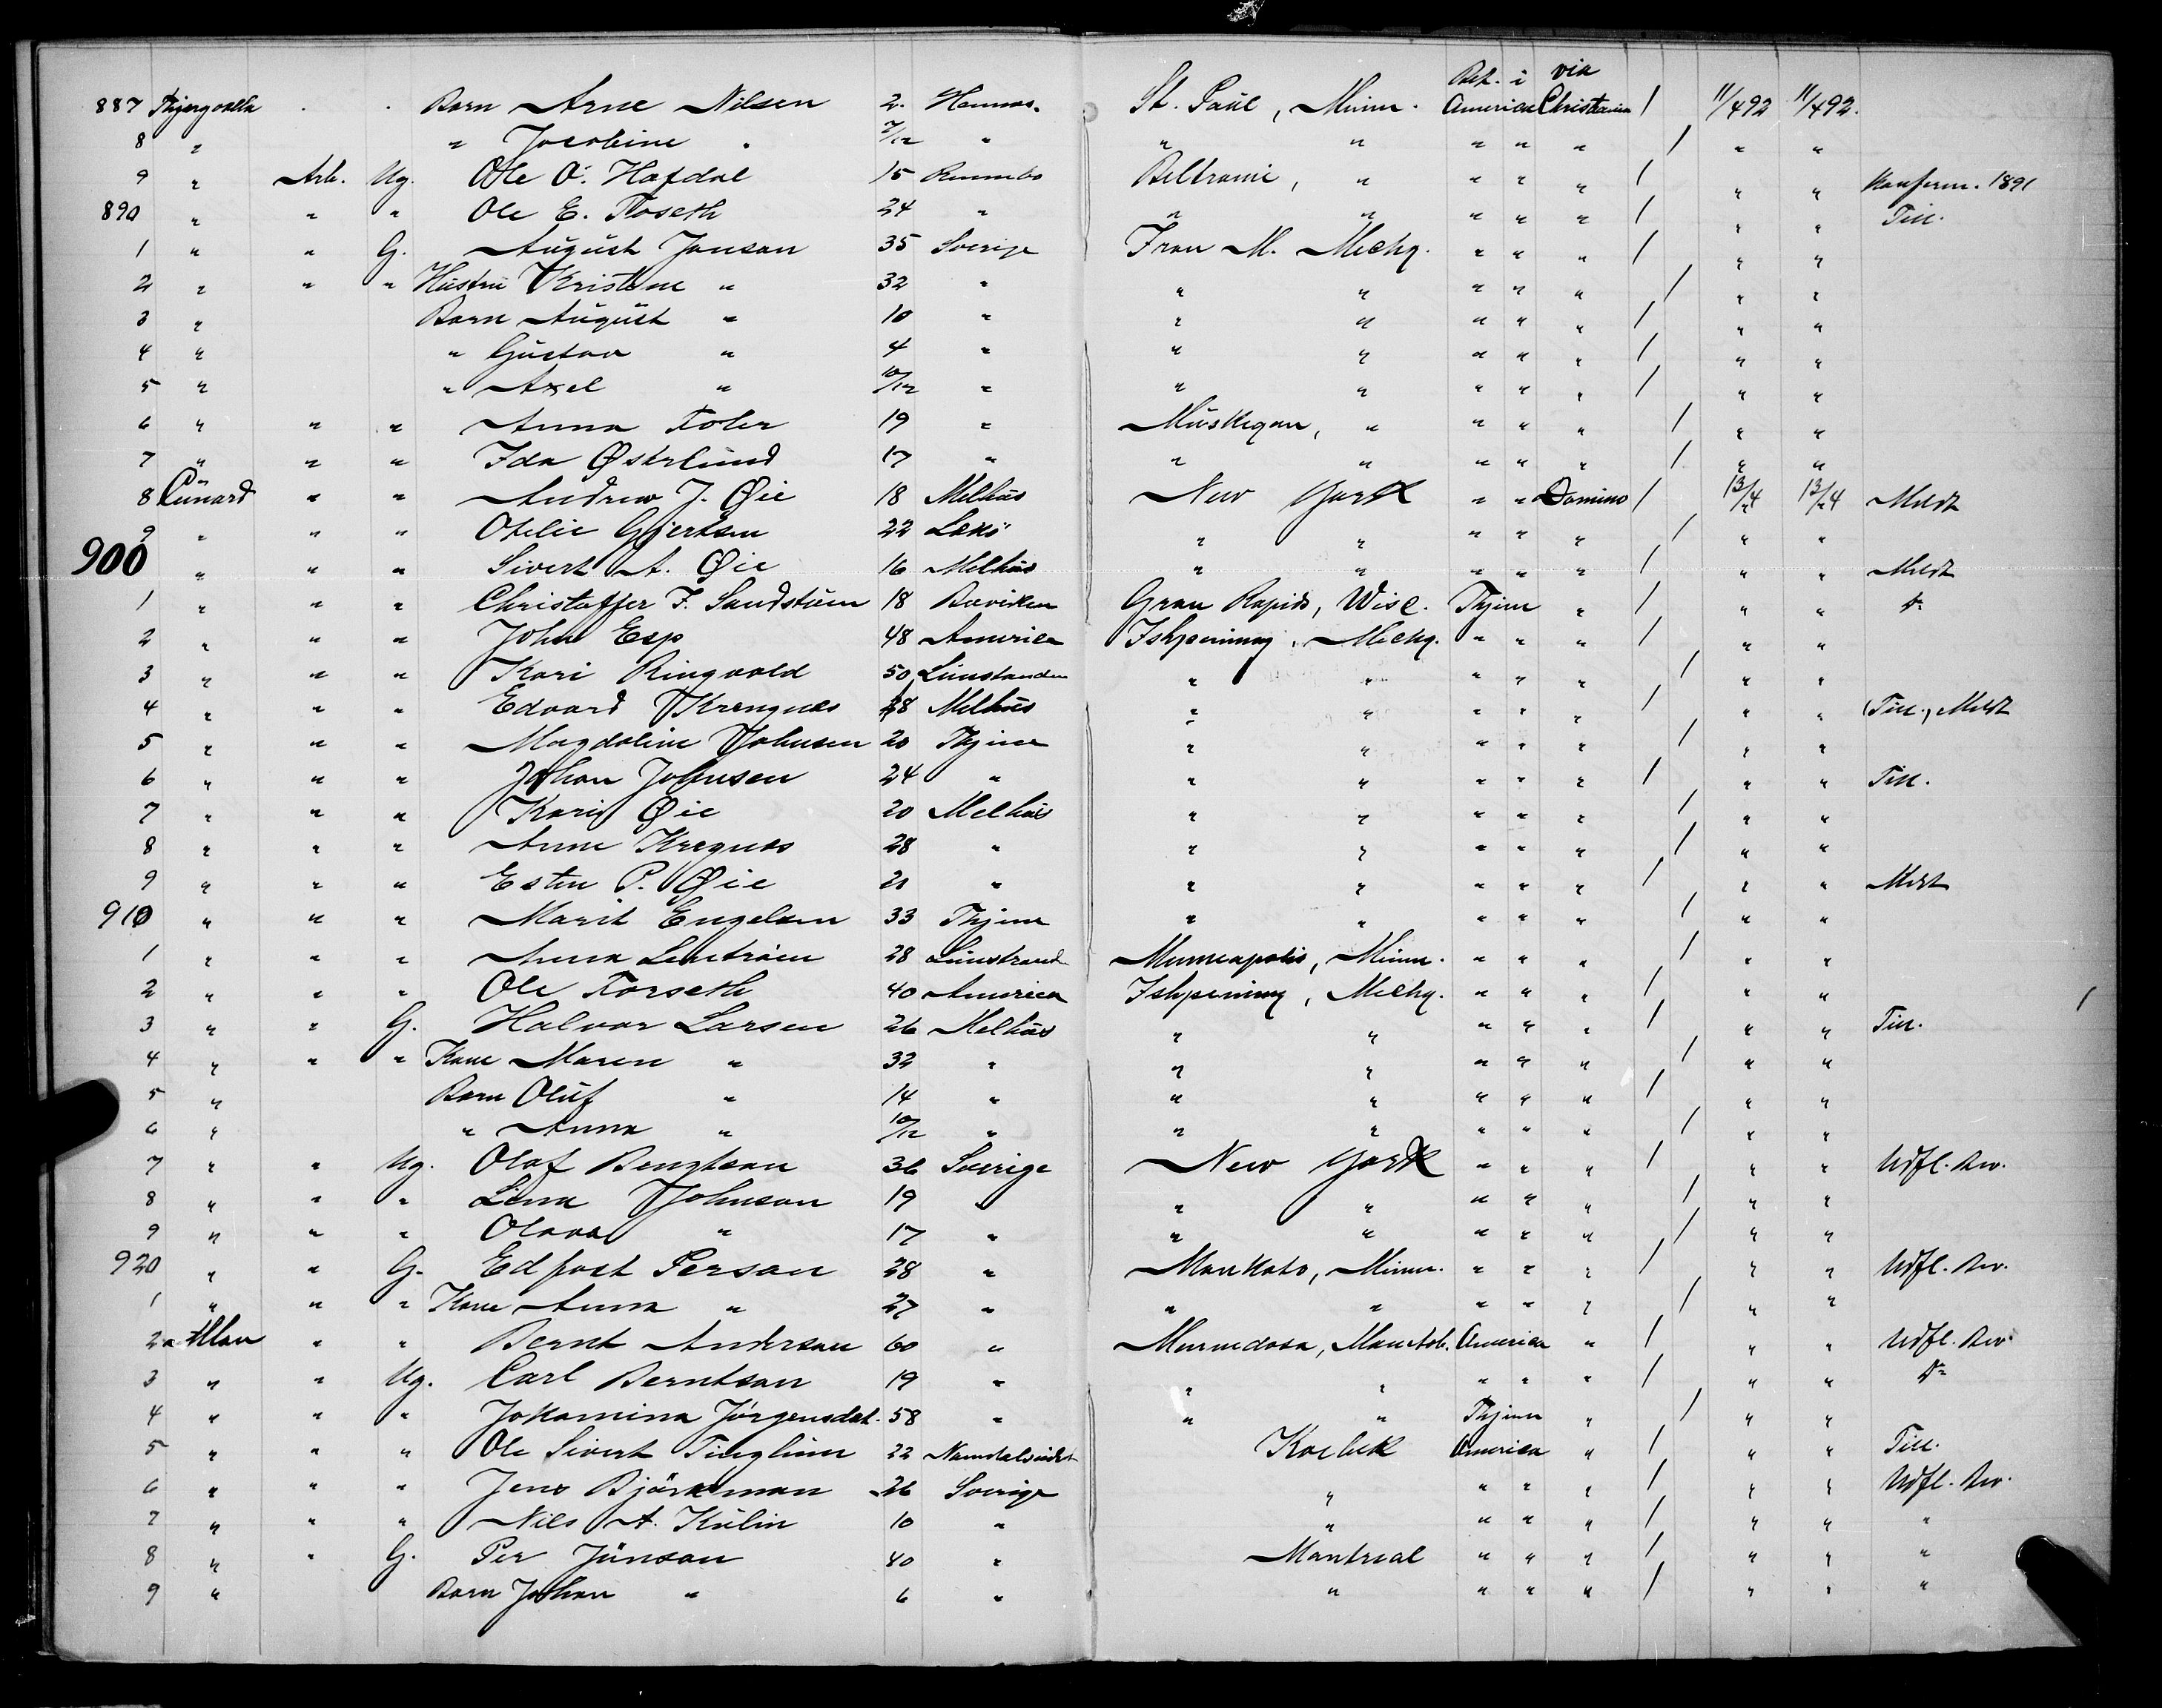 Bet. i via
887 Thjengvalla " " Barn Arne Nilsen 2 Hamnes. St. Paul, Minn. America Christiania / 11/4 92 11/4 92.
8 " " Jacobine " 7/12 " " " " " " / " "
9 " Arb. Ug. Ole O. Hafdal 15 Beltrami, " " " " / " " Konferm. 1891
890 " " " Ole E. Floseth 24 " " " " " " / " " Till.
1 " " G. August Jonson 35 Sverige Iron M. Michg. " " " / " "
2 " " " Hustru Kristine " 32 " " " " " " / " "
3 " Barn August " 10 " " " " " " / " "
4 " " Gustav " 4 " " " " " " / " "
5 " " Axel " 10/12 " " " " " " / " "
6 " " " Anna 19 " Muskegon, " " " " / " "
7 " " " Ida Østerlund 17 " " " " " " / " "
8 Cunard " " Andrew J. Øie 18 Melhus New York " " Domino / 13/4 13/4 Meldt
9 " " " Otelie Gjertsen 22 Leksö " " " " " / " "
900 " " " Sivert A. Øie 16 Melhus " " " " " / " " Meldt
1 " " " Christoffer F. Sandstum 18 Buviken Gran Rapids, Wisc. Thjem " / " " Do
2 " " " John Esp 48 America Ishpeming, Michg. " " " / " "
3 " " " Kari Ringvold 50 " " " " " / " "
4 " " " Edvard Kregnes 28 Melhus " " " " " / " " Till., Meldt
5 " " " Magdaline Johnsen 20 Thjem " " " " " / " "
6 " " " Johan Johnsen 24 " " " " " " / " " Till.
7 " " " Kari Øie 20 Melhus " " " " " / " "
8 " " " Anne Kregnes 28 " " " " " " / " "
9 " " " Esten P. Øie 21 " " " " " " / " " Meldt
910 " " " Marit Engelsen 33 Thjem " " " " " / " "
1 " " " Anna 28 Minneapolis, Minn. " " " / " "
2 " " " Ole Forseth 40 America Ishpeming, Michg. " " " / " "
3 " " G. Halvor Larsen 26 Melhus " " " " " / " " Till.
4 " " " Kone Maren " 32 " " " " " " / " "
5 " Barn Oluf " 14 " " " " " " / " "
6 " " Anna " 10/12 " " " " " " / " "
7 " " Ug. Olof Bengtson 36 Sverige New York " " " / " " Udfl. Bev.
8 " " " Lina Johnson 19 " " " " " " / " "
9 " " " Olava " 17 " " " " " " / " "
920 " " G. Ed post Person 28 " Mankato, Minn. " " " / " " Udfl. Bev.
1 " " " Kone Anna " 27 " " " " " " / " "
2 Allan " " Bernt Anderson 60 " Minnedosa, Manitob. America " / " " Udfl. Bev.
3 " " Ug. Carl Berntson 19 " " " " " " / " " Do
4 " " " Johannna Jörgensdat. 58 " " " Thjem " / " "
5 " " " Ole Sivert Tinglum 22 Namdalseidet Koebek America " / " " Till.
6 " " " Jens Björkman 26 Sverige " " " " / " " Udfl. Bev.
7 " " " Nils A. Kulin 10 " " " " " / " " "
8 " " G. Per Junson 40 " Montreal " " " / " " "
9 " Barn Johan " 6 " " " " " / " " "